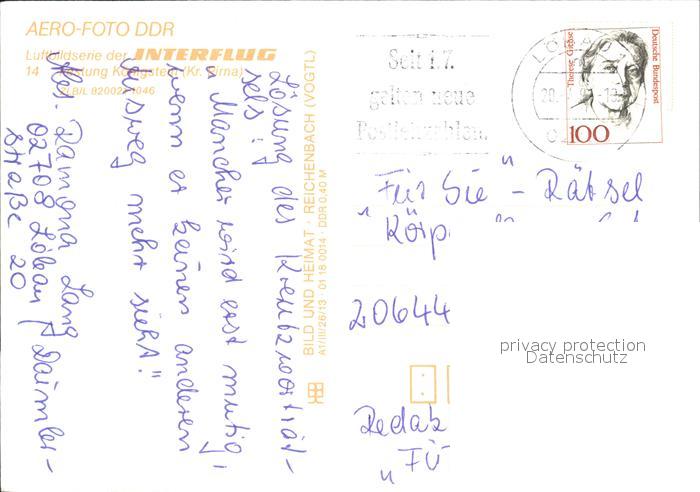 AERO-FOTO DDR
Luftbildserie der INTERFLUG
14 Festung Königstein (Kr. Pirna)
ZLB/L 8200214046
Lösung des Kreuzworträt-
sels:
" Mancher wird erst mutig,
wenn er keinen anderen
Ausweg mehr sieht."
Abs. Ramona Lang
02708 Löbau Daimler-
straße 20
BILD UND HEIMAT · REICHENBACH (VOGTL)
A1/III/26/13 · 01 18 0014 · DDR 0,40 M
Seit 1.7.
gelten neue
Postleitzahlen.
LÖBAU
Therese Giehse
Deutsche Bundespost
100
"Für Sie" - Rätsel
20644
privacy protection
Datenschutz